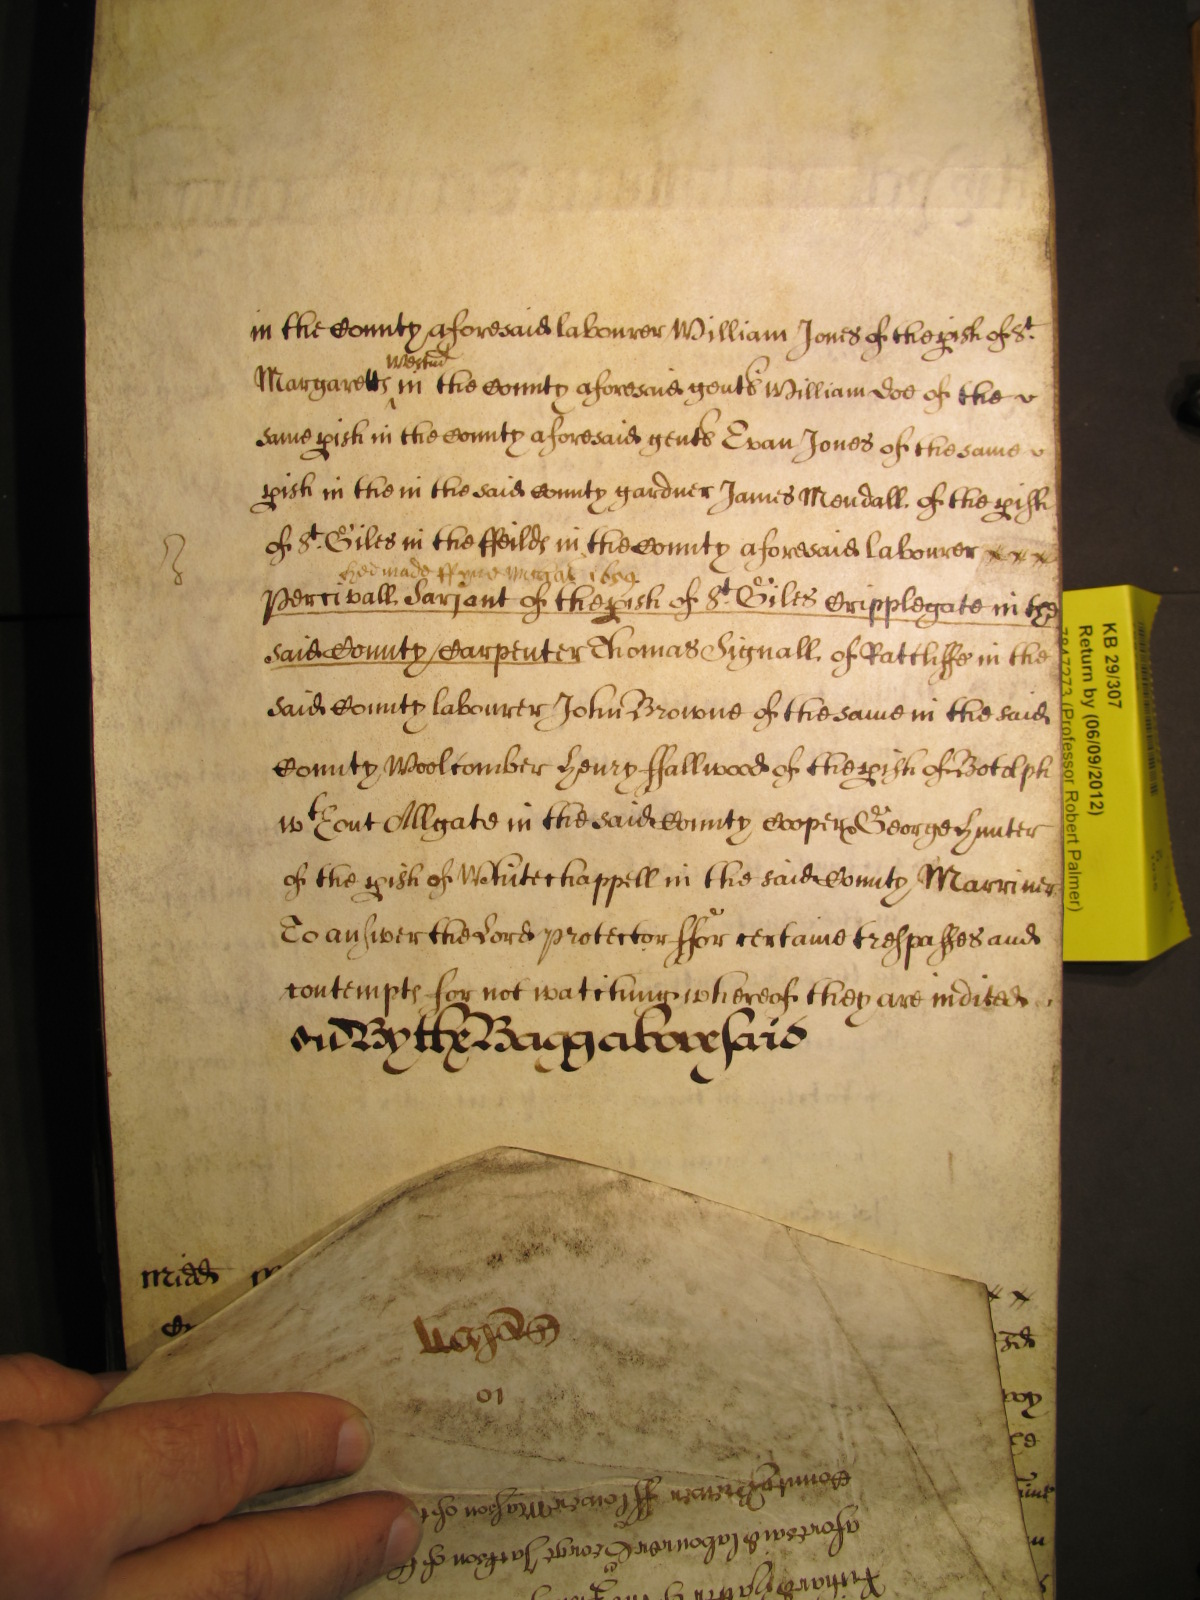 in the County aforesaid labourer William Jones of the pish of St.
Westmr
Margaretts in the County aforesaid gent William Doe of the
same pish in the County aforesaid gent Evan Jones of the same
pish in the in the said County gardner James Mendall of the pish
of St. Giles in the ffeilds in the County aforesaid labourer
hed made ffyne 1659
Percivall Sarjant of the pish of St Giles Cripplegate in the
said County Carpenter Thomas Signall of Rattliffe in the
said County labourer John Browne of the same in the said
County Woolcomber Henry ffallwood of the pish of Botolph
wthout Allgate in the said County Cooper George Hunter
of the pish of Whitechappell in the said County Marriner
To answer the Lord Protector ffor certaine trespasses and
contempts for not watching whereof they are indited
By the Bagg abovesaid
KB 29/307
Return by (06/09/2012)
7847273 (Professor Robert Palmer)
Midd
10
County
aforesaid labourer George Jackson of
Richard